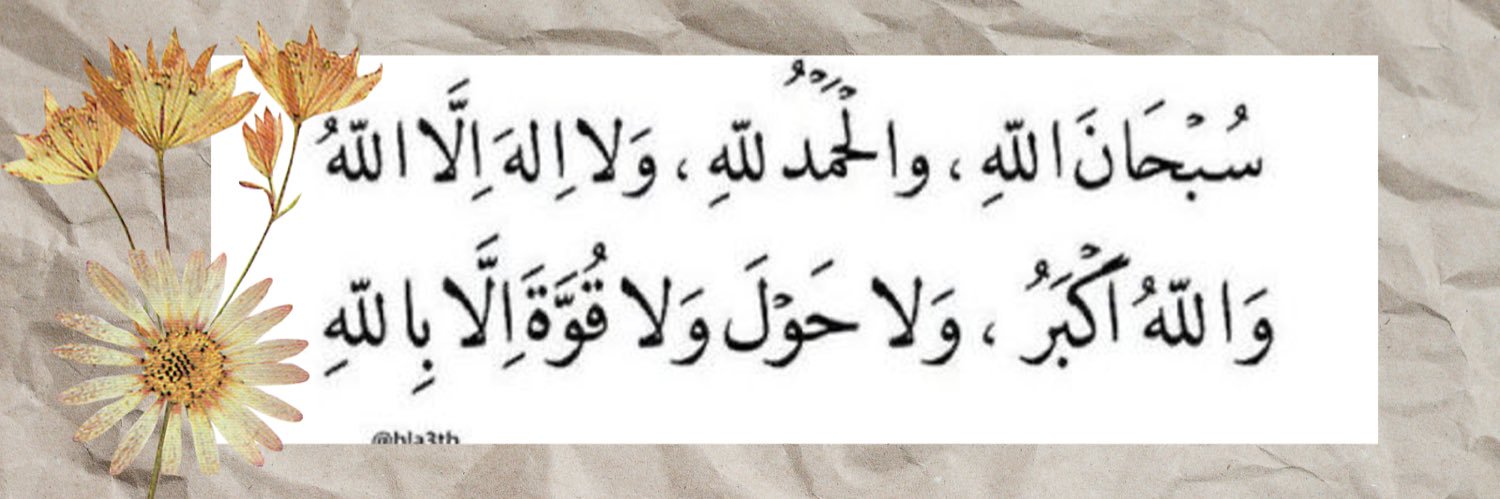 سُبْحَانَ اللّهِ ، والْحَمْدُ للّهِ ، وَلا اِلهَ اِلَّا اللّهُ
وَاللّهُ اَكْبَرُ ، وَلا حَوْلَ وَلا قُوَّةَ اِلَّا بِاللّهِ
@bla3th